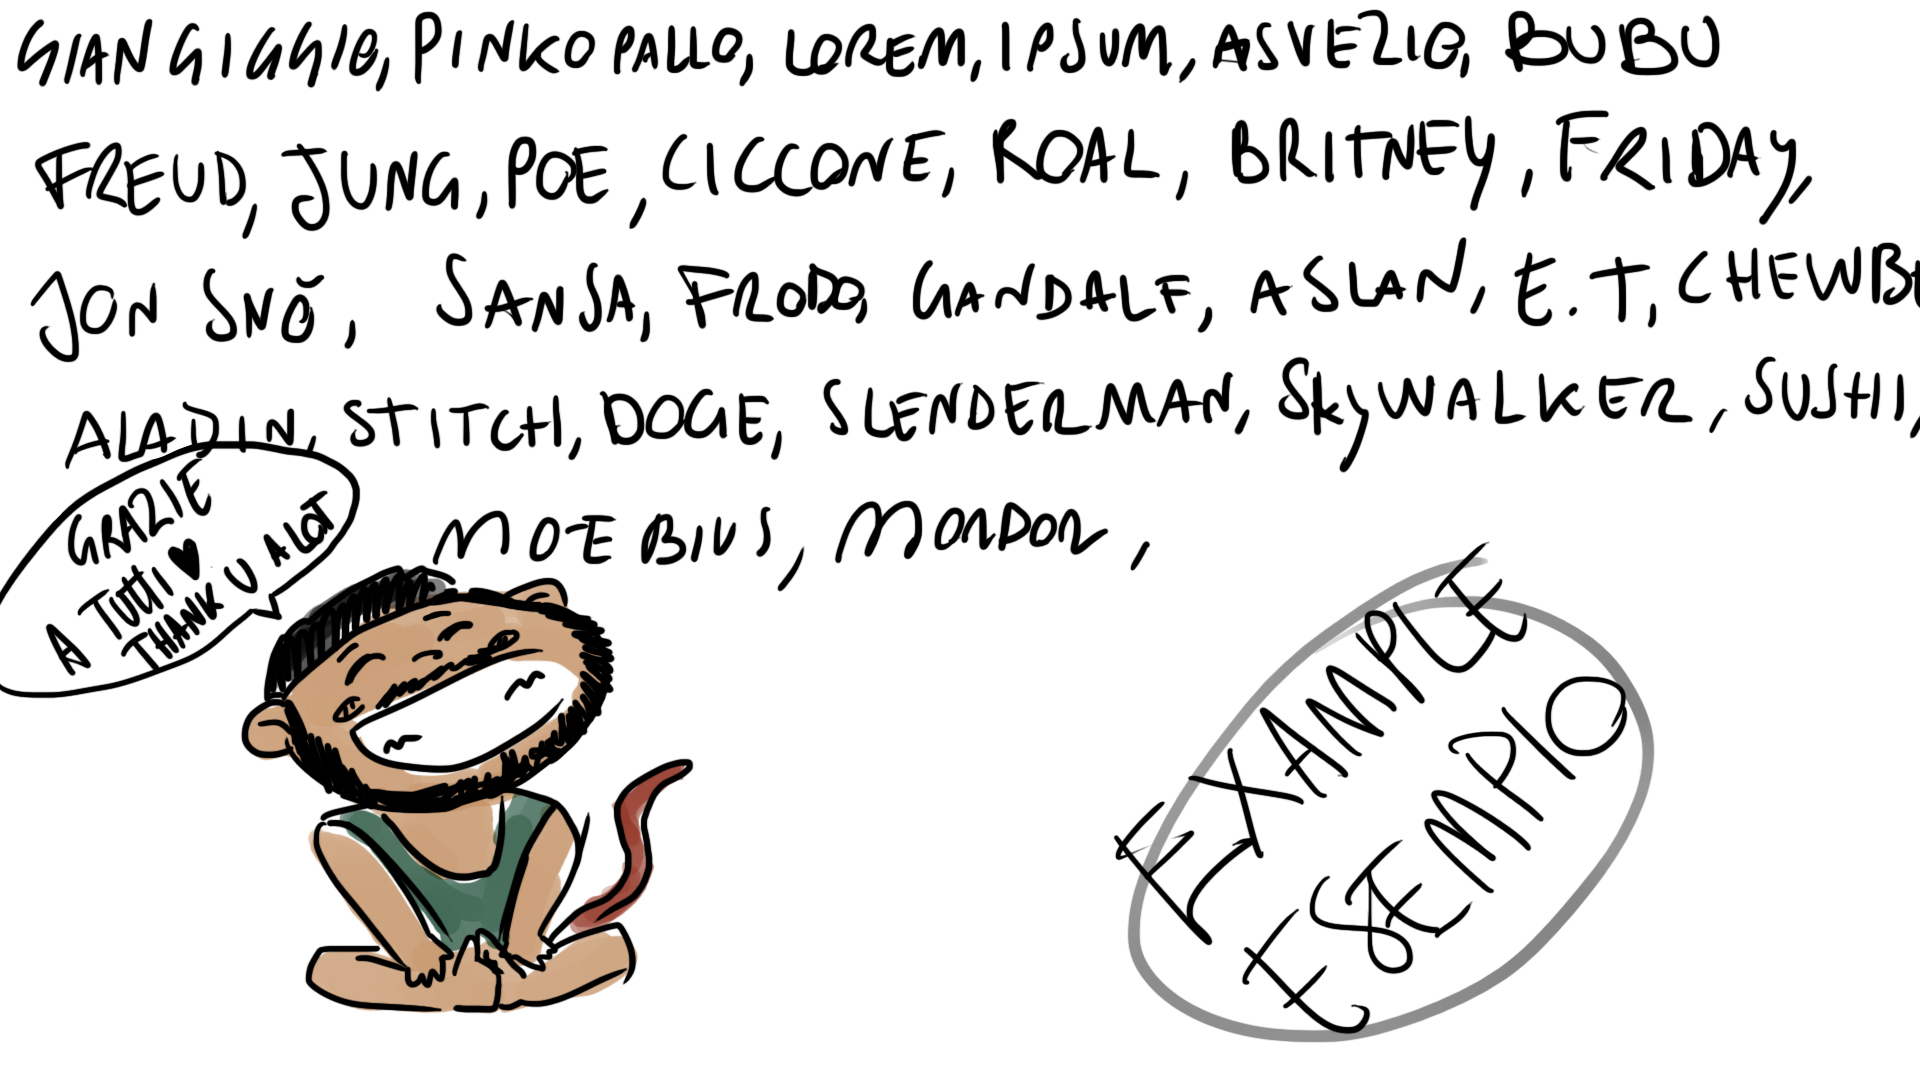 GIANGIGGIO, PINKO PALLO, LOREM, IPSUM, ASVEZIO, BUBU
FREUD, JUNG, POE, CICCONE, ROAL, BRITNEY, FRIDAY,
JON SNŎ, SANSA, FRODO, GANDALF, ASLAN, E.T, CHEWBE
ALADIN, STITCH, DOGE, SLENDERMAN, SkyWALKER, SUSHI,
MOEBIUS, MORDOR,
GRAZIE
A TUTTI ♥
THANK U A LOT
EXAMPLE
ESEMPIO